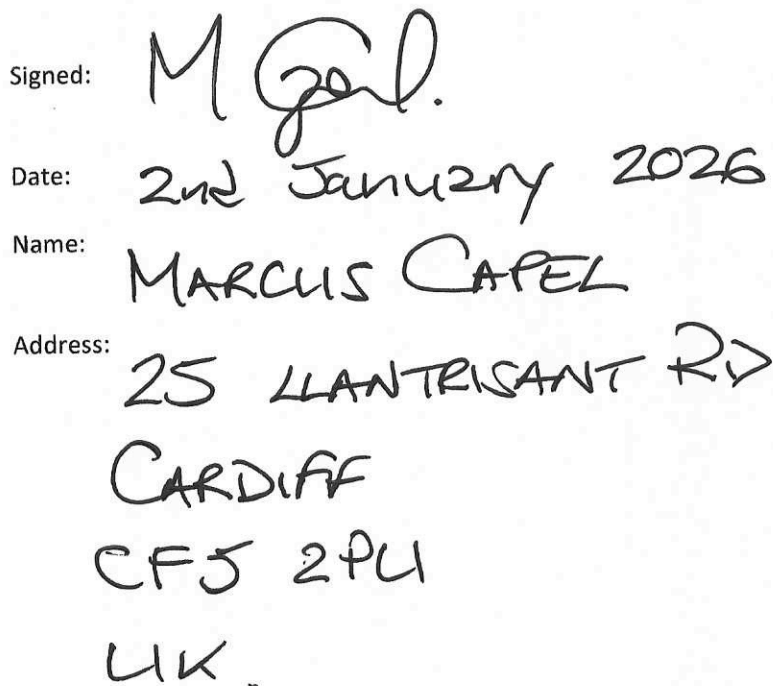 Signed: M
Date: 2nd January 2026
Name: MARCUS CAPEL
Address: 25 LLANTRISANT RD
CARDIFF
CF5 2PU
UK.